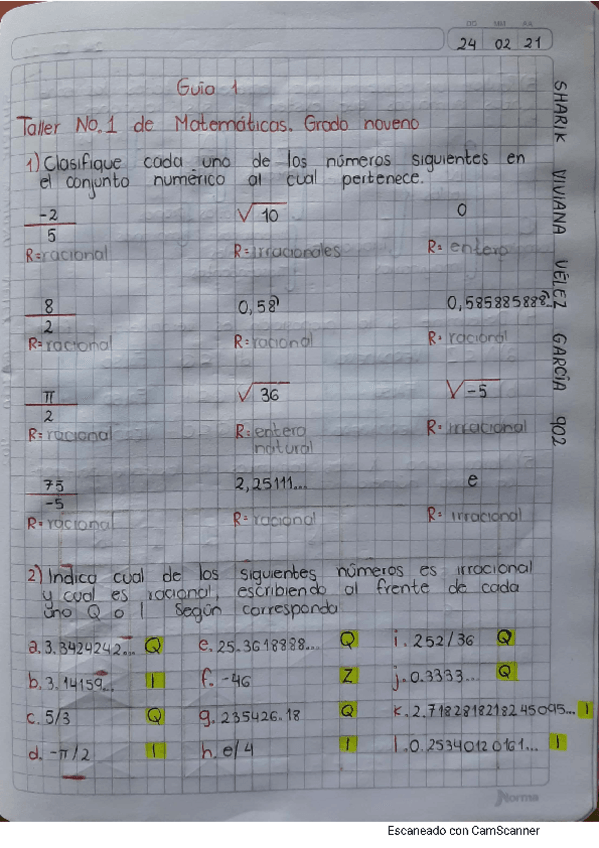 DD MM AA
24 02 21
Guia 1
Taller No. 1 de Matemáticas. Grado noveno
1) Clasifique cada uno de los números siguientes en
el conjunto numérico al cual pertenece.
-2/5 √10 0
R=racional R=irracionales R= entero
8/2 0,58 0,585885888..
R=racional R=racional R=racional
π/2 √36 √-5
R=racional R=entero R=irracional
natural
75/-5 2,25111... e
R=racional R=racional R= irracional
2) Indica cual de los siguientes números es irracional
y cual es racional, escribiendo al frente de cada
uno Q o I Según corresponda
a. 3.3424242... Q e. 25.3618888... Q i. 252/36 Q
b. 3.14159... I f. -46 Z j. 0.3333... Q
c. 5/3 Q g. 235426.18 Q k. 2.718281828245095... I
d. -π/2 I h. e/4 I l. 0.25340120161... I
SHARIK VIVIANA VÉLEZ GARCÍA 902
Norma
Escaneado con CamScanner